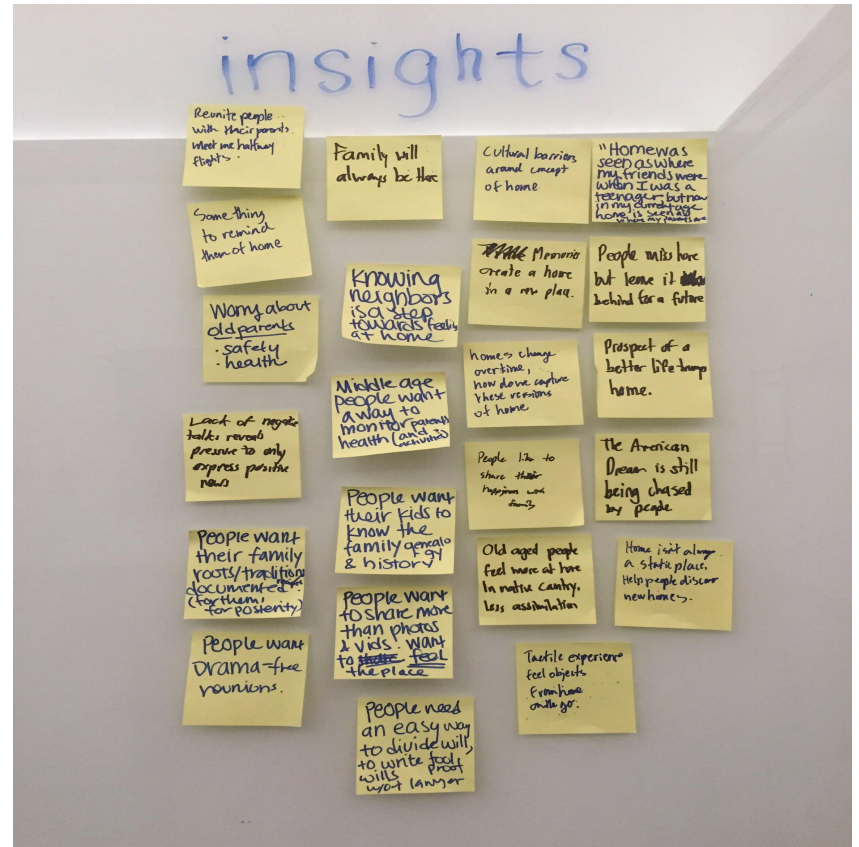 insights
Reunite people
with their parents.
meet me halfway
flights.
Something
to remind
them of home
Worry about
old parents
· safety
· health
Lack of negative
talks reveals
pressure to only
express positive
news
People want
their family
roots/tradition
documented
(for them,
for posterity)
People want
Drama-free
reunions.
Family will
always be there
Knowing
neighbors
is a step
towards feeling
at home
Middle age
people want
a way to
monitor parents
health (and
activities)
People want
their kids to
know the
family genealogy
& history
People want
to share more
than photos
& vids. want
to feel
the place
People need
an easy way
to divide will,
to write fool
wills proof
w/out lawyer
Cultural barriers
around concept
of home
Memories
create a home
in a new place.
homes change
overtime,
how do we capture
these versions
of home
People like to
share their
happiness with
family
Old aged people
feel more at home
in native country.
less assimilation
Tactile experience
feel objects
from home
on the go.
"Home was
seen as where
my friends were
when I was a
teenager, but now
in my current age
home is seen as
where my parents are
People miss home
but leave it
behind for a future
Prospect of a
better life trump
home.
The American
Dream is still
being chased
by people
Home isn't always
a static place.
Help people discover
new homes.